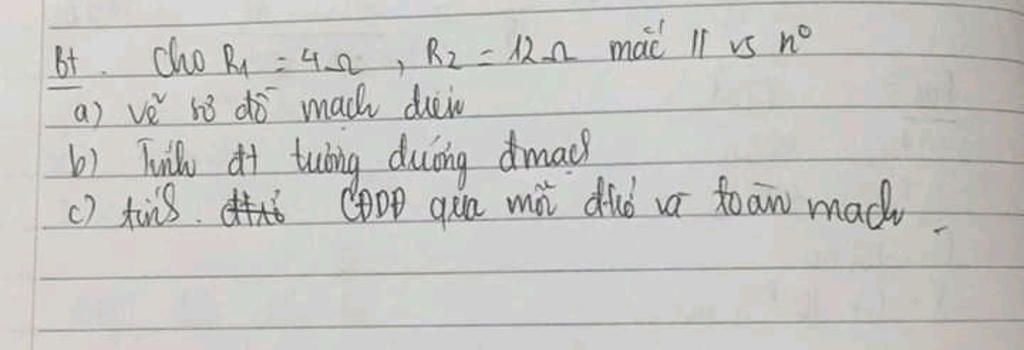 Bt. Cho R1 = 4Ω, R2 = 12Ω mắc // vs no
a) vẽ sơ đồ mạch điện
b) Tính đt tương đương đmạch
c) tính. CĐDĐ qua mỗi đtrở và toàn mạch.